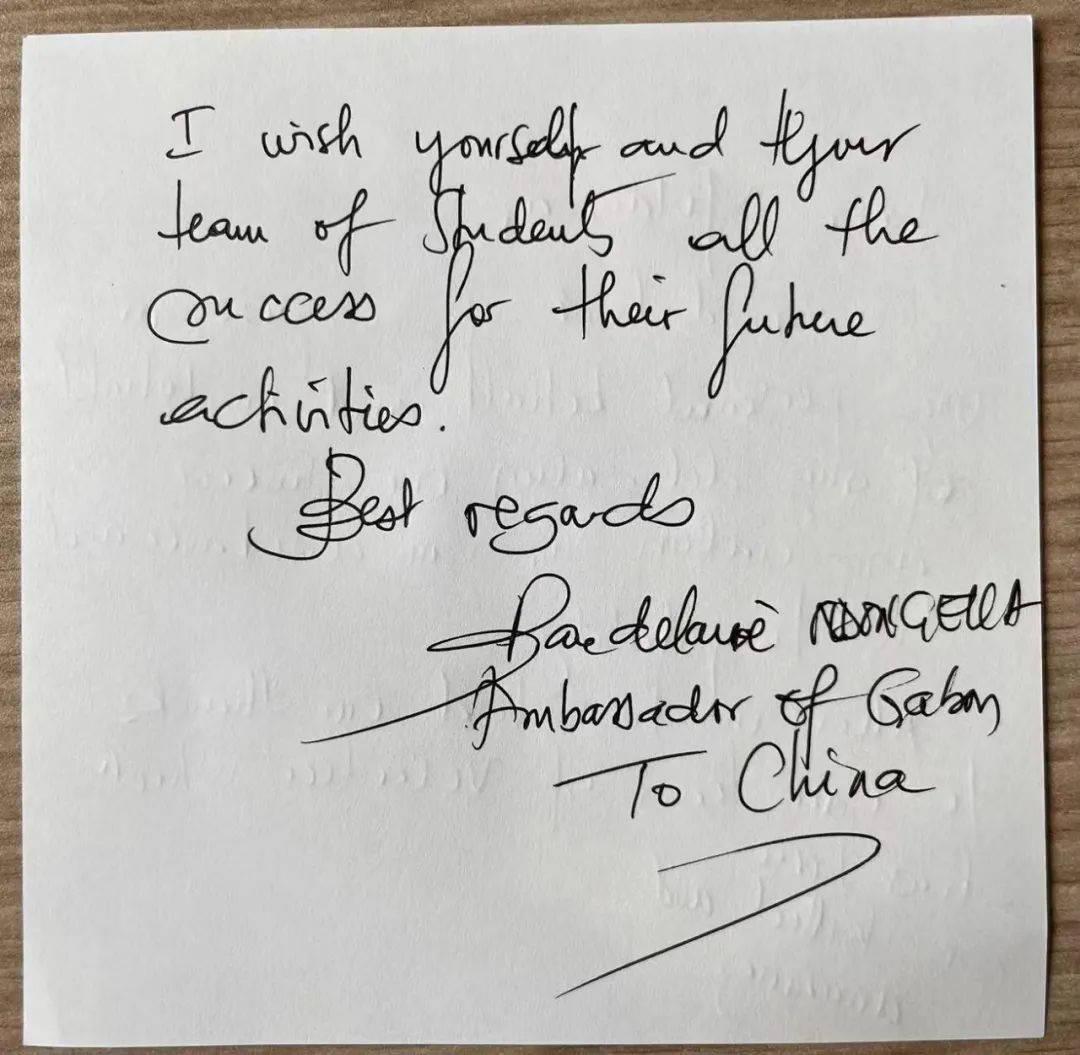 I wish yourself and your
team of Students all the
success for their future
activities.
Best regards
Baudelaire NDONG ELLA
Ambassador of Gabon
To China